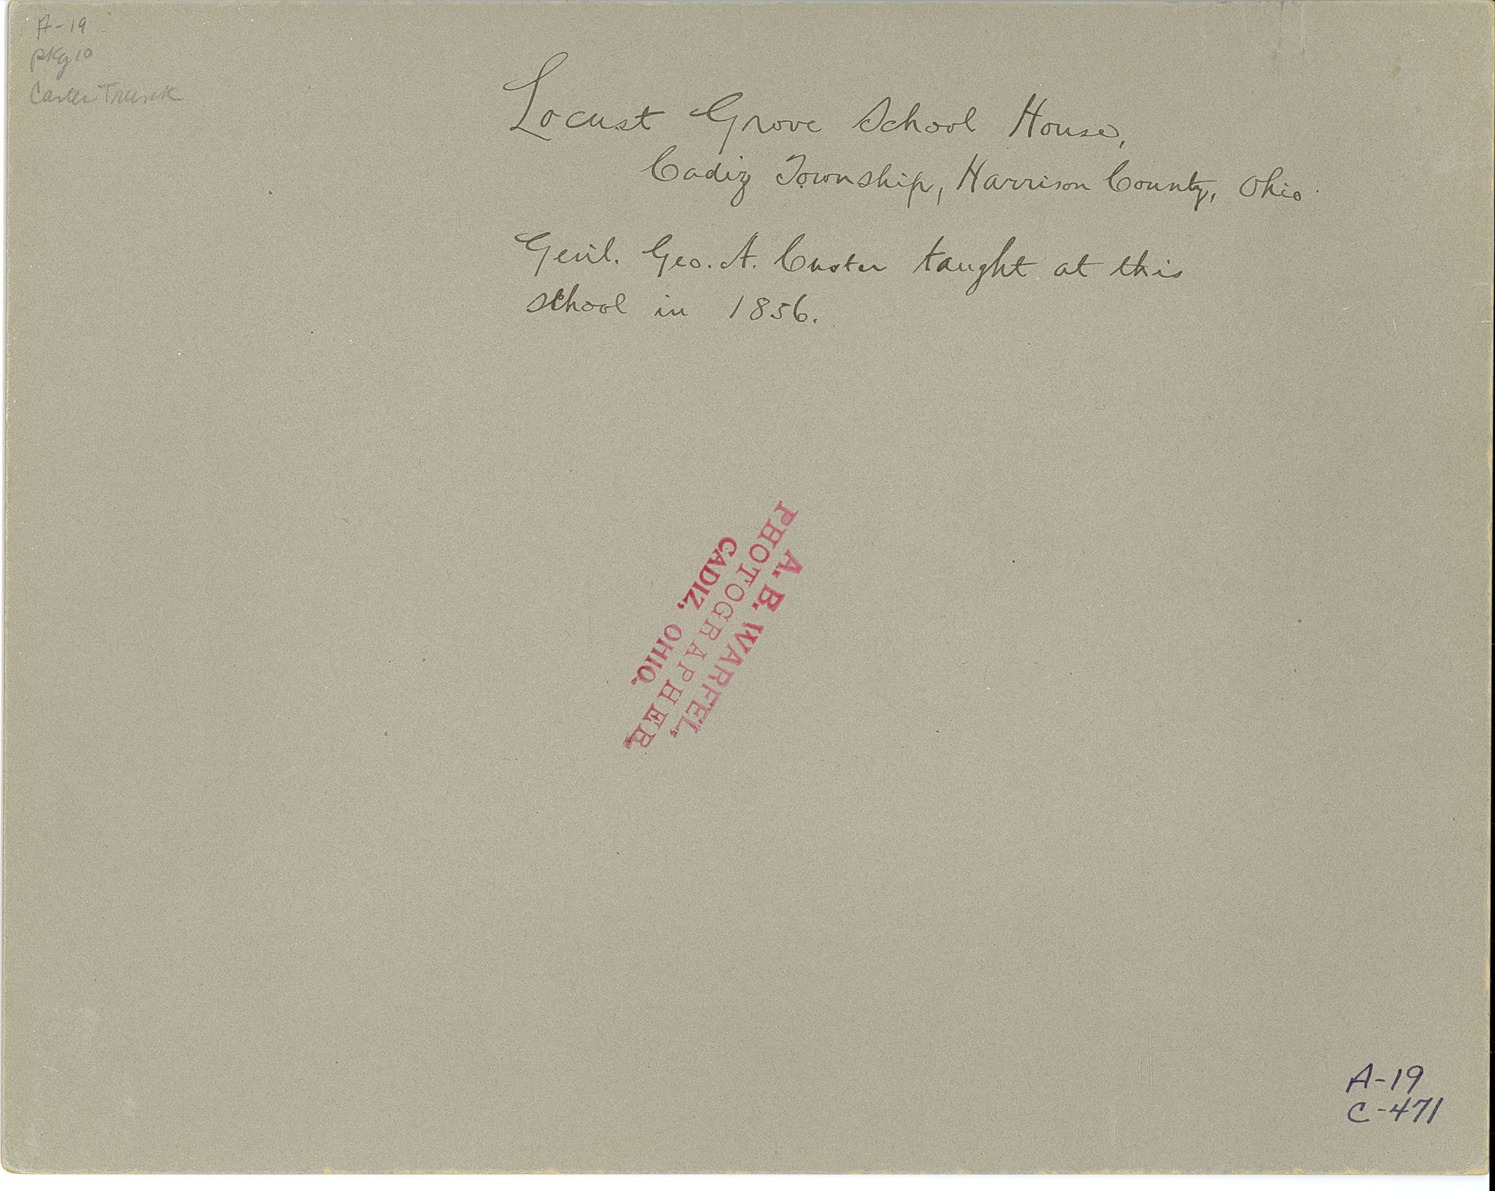 A-19
pkg 10
Carter Trunk
Locust Grove School House,
Cadiz Township, Harrison County, Ohio.
Genl. Geo. A. Custer taught at this
school in 1856.
A. B. WARFEL,
PHOTOGRAPHER.
CADIZ, OHIO.
A-19
C-471